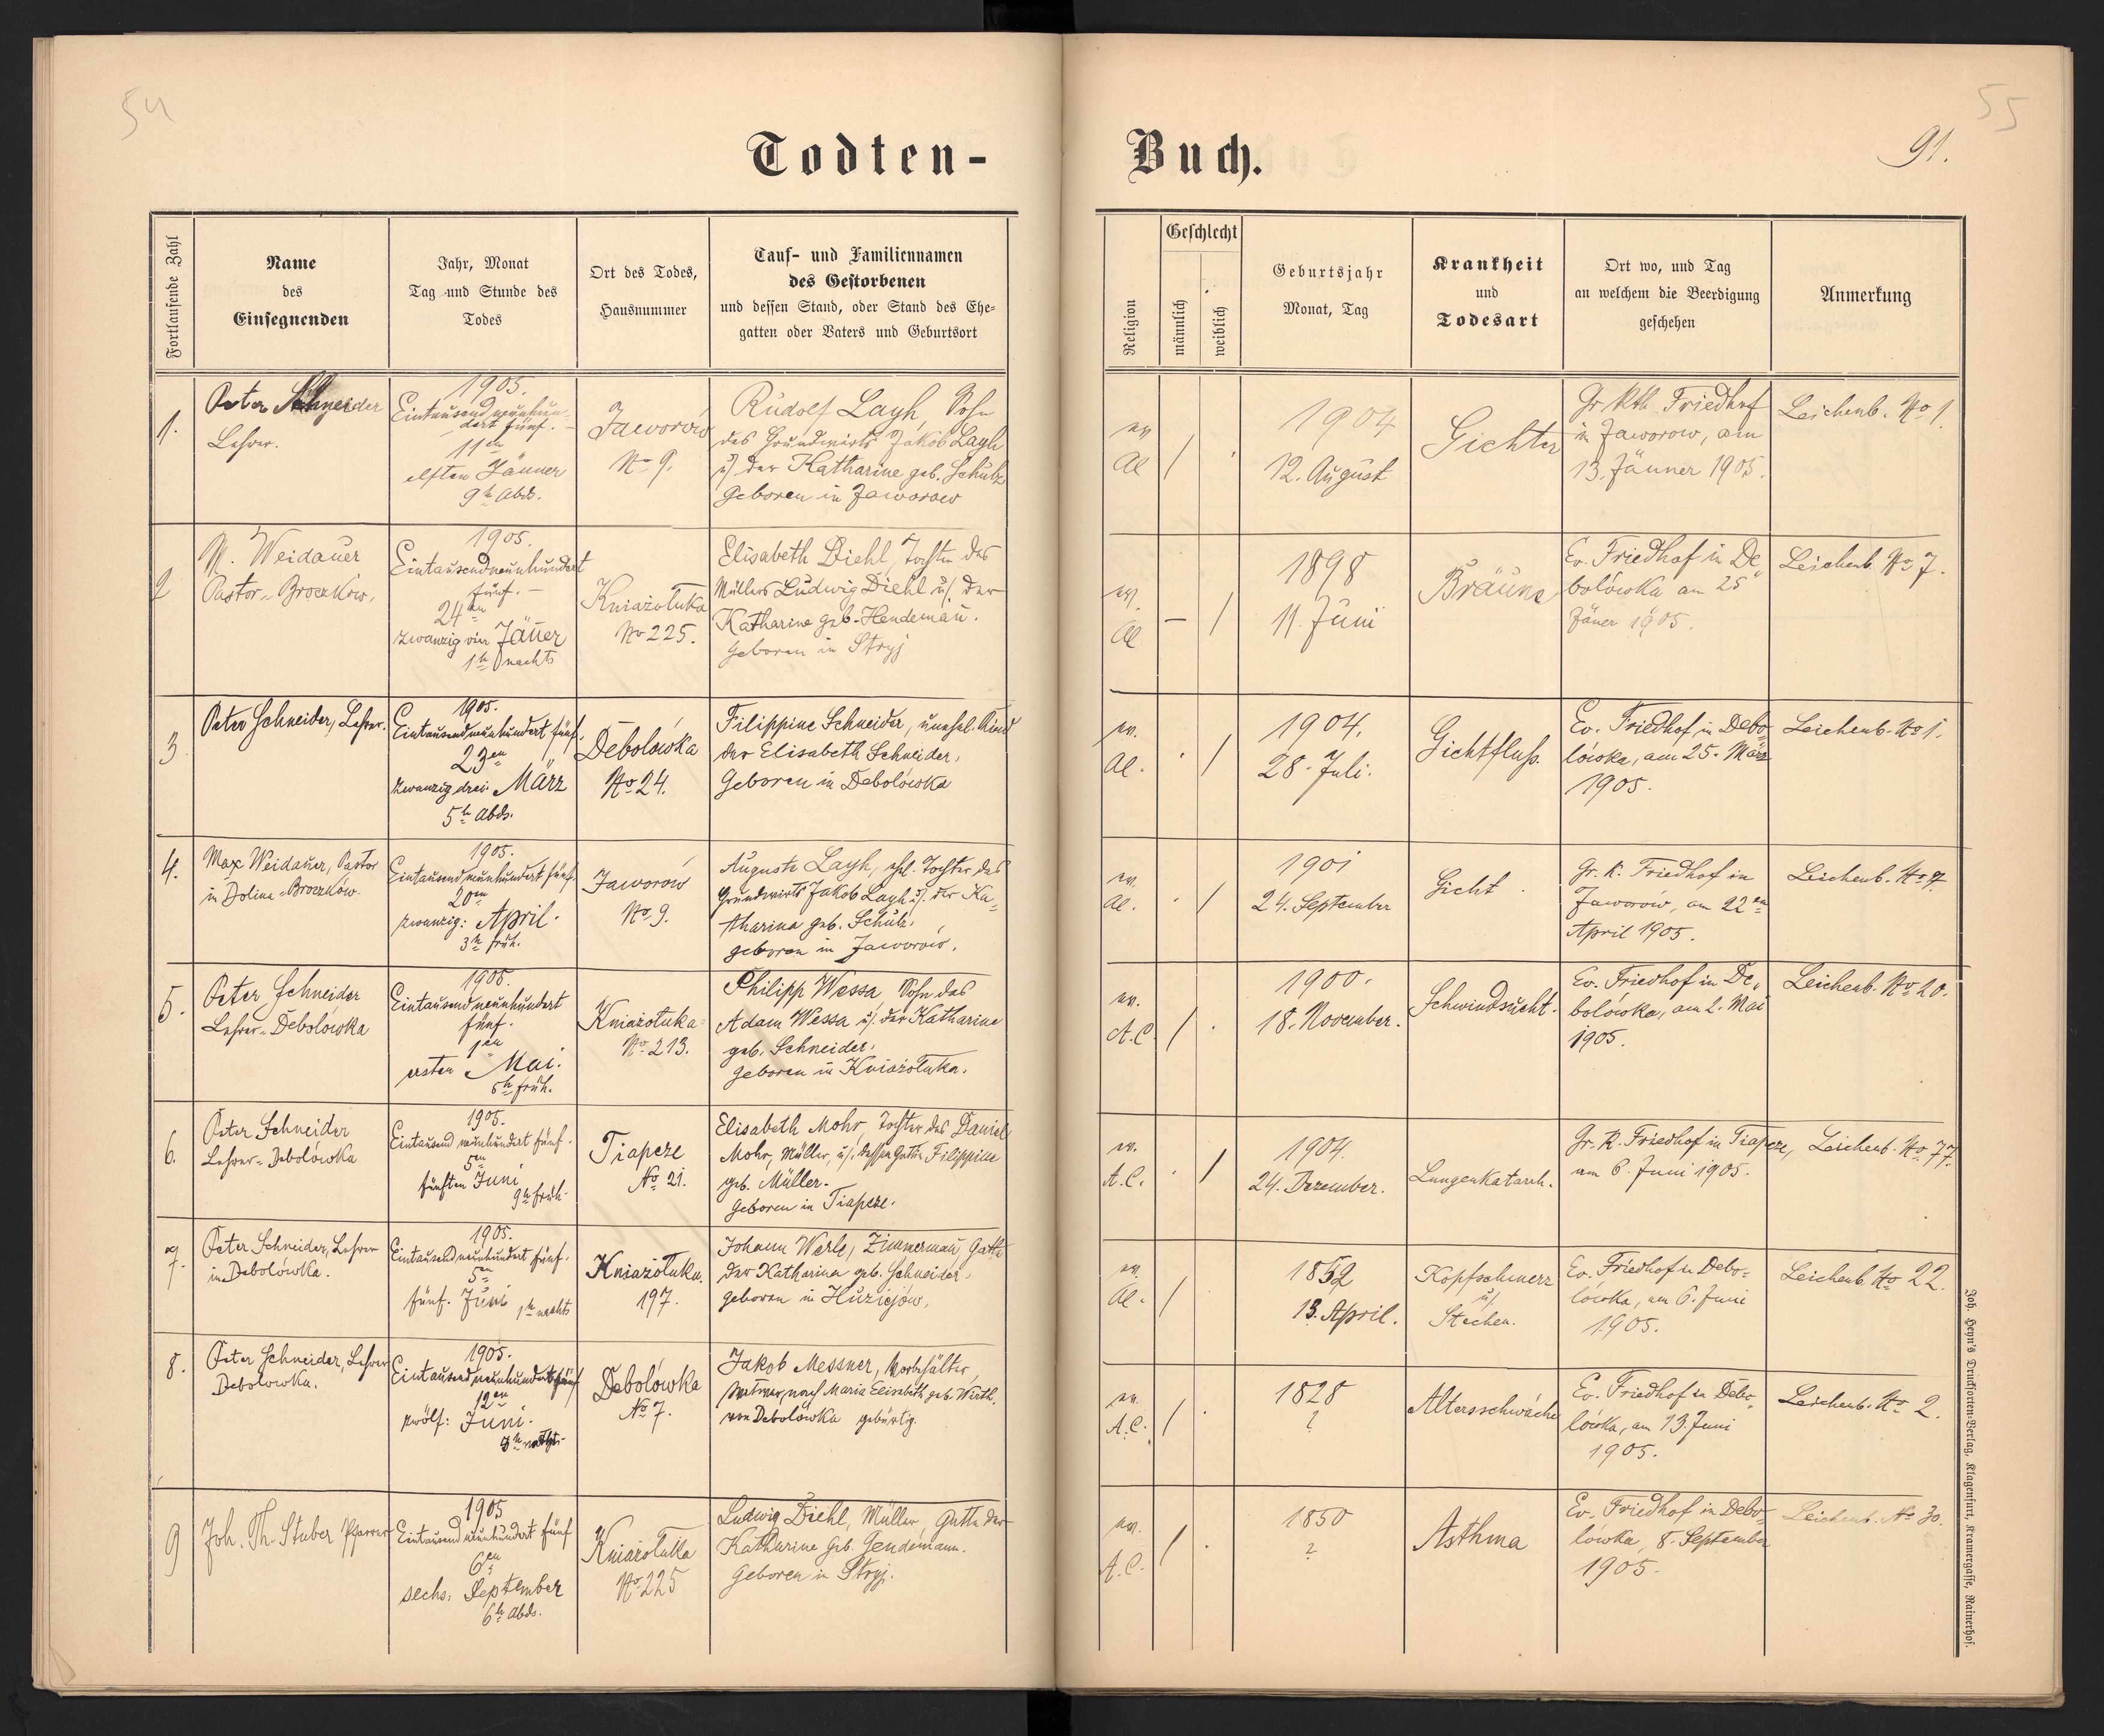 54
55
91.
Todten-
Buch.
Fortlaufende Zahl
Name
des
Einsegnenden
Jahr, Monat
Tag und Stunde des
Todes
Ort des Todes,
Hausnummer
Tauf- und Familiennamen
des Gestorbenen
und dessen Stand, oder Stand des Ehe-
gatten oder Vaters und Geburtsort
Religion
Geschlecht
männlich
weiblich
Geburtsjahr
Monat, Tag
Krankheit
und
Todesart
Ort wo, und Tag
an welchem die Beerdigung
geschehen
Anmerkung
1.
Peter Schneider
Lehrer.
1905.
Eintausendneunhun-
dert fünf.
11en
elften Jänner
9h Abds.
Jaworów
No 9.
Rudolf Layh, Sohn
des Grundwirts Jakob Layh
u/ der Katharine geb. Schulz
geboren in Jaworow
ev
Al
/
1904
12. August
Gichter
Gr. kth. Friedhof
in Jaworow, am
13. Jänner 1905.
Leichenb. No 1.
2
M. Weidauer
Pastor-Broczkow.
1905.
Eintausendneunhundert
fünf.-
24en
zwanzig vier Jäner
1h nachts
Kniażołuka
No 225.
Elisabeth Diehl, Tochter des
Müllers Ludwig Diehl u/ der
Katharine geb. Hendeman.
geboren in Stryj
ev.
Al
— /
1898
11. Juni
Bräune
Ev. Friedhof in De-
bolówka am 25
Jäner 1905.
Leichenb. No 7.
3
Peter Schneider, Lehrer.
1905.
Eintausendneunhundert fünf.
23en
zwanzig drei März
5h Abds.
Debolówka
No 24.
Filippine Schneider, unehel. Kind
der Elisabeth Schneider,
geboren in Debolówka
ev.
Al.
/
1904.
28. Juli.
Gichtfluß.
Ev. Friedhof in Debo-
lówka, am 25. März
1905.
Leichenb. No 1.
4.
Max Weidauer, Pastor
in Dolina-Broczków.
1905.
Eintausendneunhundert fünf.
20en
zwanzig: April.
3h früh.
Jaworów
No 9.
Auguste Layh, ehl. Tochter des
Grundwirts Jakob Layh u/ der Ka-
tharina geb. Schulz.
geboren in Jaworów.
ev.
Al.
/
1901
24. September
Gicht
Gr. k. Friedhof in
Jaworów, am 22en
April 1905.
Leichenb. No
5.
Peter Schneider
Lehrer-Debolówka
1905.
Eintausendneunhundert
fünf.
1en
ersten Mai.
5h früh.
Kniażołuka
No 213.
Philipp Wessa, Sohn des
Adam Wessa u/ der Katharine
geb. Schneider.
geboren in Kniażołuka.
ev.
A.C.
/
1900.
18. November.
Schwindsucht.
Ev. Friedhof in De-
bolówka, am 2. Mai
1905.
Leichenb. No 20.
6.
Peter Schneider
Lehrer-Debolówka
1905.
Eintausend neunhundert fünf.
5en
fünften Juni
9h früh.
Tiapcze
No 21.
Elisabeth Mohr, Tochter des Daniel
Mohr, Müller, u/ dessen Gattin Filippine
geb. Müller.
geboren in Tiapcze.
ev.
A.C.
/
1904.
24. Dezember.
Lungenkatarrh.
Gr. k. Friedhof in Tiapcze,
am 6. Juni 1905.
Leichenb. No 77.
7.
Peter Schneider, Lehrer
in Debolówka.
1905.
Eintausendneunhundert fünf.
5en
fünf. Juni 1h nachts
Kniażołuka.
197.
Johann Werle, Zimmerman, Gatte
der Katharina geb. Schneider,
geboren in Huziejów,
ev.
Al.
/
1852
13. April.
Kopfschmerz
u/
Stechen.
Ev. Friedhof in Debo-
lówka, am 6. Juni
1905.
Leichenb. No 22.
8.
Peter Schneider, Lehrer
Debolowka.
1905.
Eintausendneunhundert fünf
12en
zwölf: Juni.
nachts.
Debolówka
No 7.
Jakob Messner, Vorbehälter,
Witwer, nach Maria Elisabeth geb. Wirth.
von Debolówka gebürtig.
ev.
A.C.
/
1828
?
Altersschwäche
Ev. Friedhof in Debo-
lówka, am 13. Juni
1905.
Leichenb. No 2.
9
Joh. Th. Stuber Pfarrer
1905
Eintausend neunhundert fünf
6en
sechs: September
6h Abds.
Kniażołuka
No 225
Ludwig Diehl, Müller, Gatte der
Katharine geb. Gendemann.
geboren in Stryj.
ev.
A.C.
/
1850
?
Asthma
Ev. Friedhof in Debo-
lówka, 8. September
1905.
Leichenb. No 30.
Joh. Heyn's Drucksorten-Verlag, Klagenfurt, Kramergasse, Rainerhof.